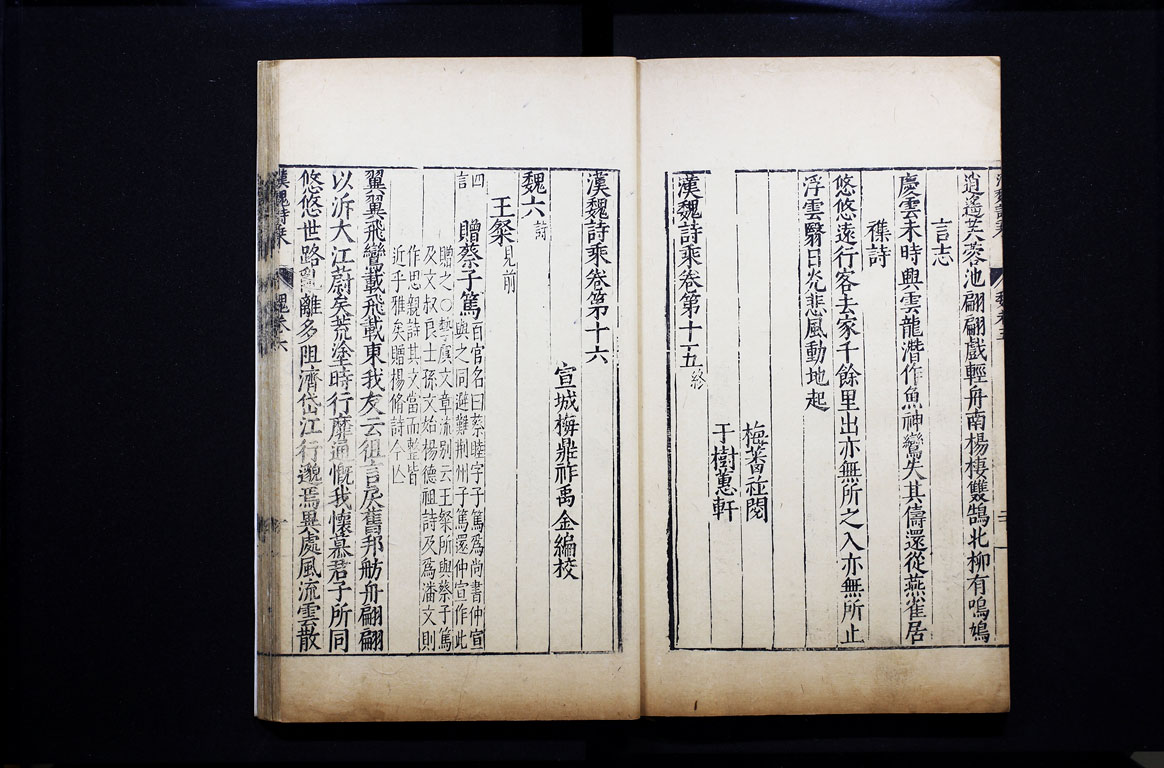 逍遙芙蓉池翩翩戲輕舟南楊棲雙鵠北柳有鳴鳩
言志
慶雲未時興雲龍潛作魚神鸞失其儔還從燕雀居
襍詩
悠悠遠行客去家千餘里出亦無所之入亦無所止
浮雲翳日光悲風動地起
梅蕃祚閱
于樹蕙軒
漢魏詩乘卷第十五終
漢魏詩乘卷第十六
宣城梅鼎祚禹金編校
魏六詩
王粲見前
四言 贈蔡子篤
百官名曰蔡睦字子篤為尚書仲宣
與之同避難荆州子篤還仲宣作此
贈之〇摯虞文章流別云王粲所與蔡子篤
及文叔良士孫文始楊德祖詩及為潘文則
作思親詩其文當而整皆
近乎雅矣贈楊脩詩今亾
翼翼飛鸞載飛載東我友云徂言戾舊邦舫舟翩翩
以泝大江蔚矣荒塗時行靡通慨我懷慕君子所同
悠悠世路亂離多阻濟岱江行邈焉異處風流雲散
漢魏詩乘 魏卷六